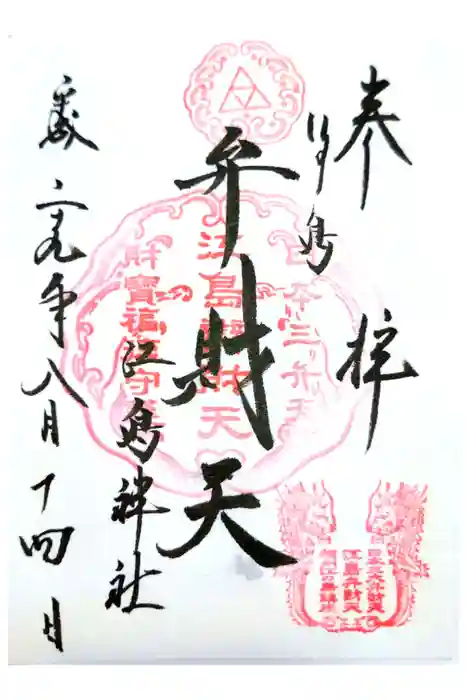 奉拝
江島
日本三弁天
弁財天
江島弁財天
江島神社
財寶福徳守護
令和二年八月十四日
日本三大弁財天
江島弁財天